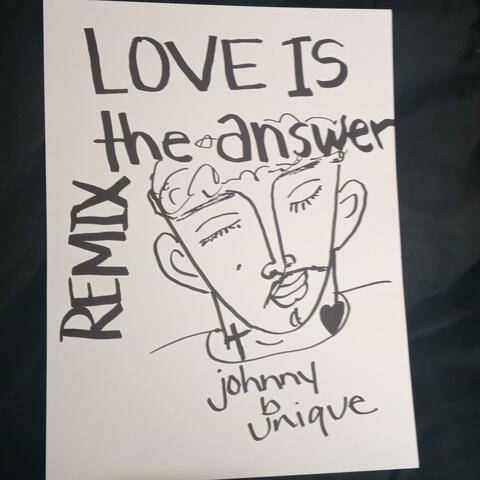 LOVE IS
the answer
REMIX
johnny
b
unique